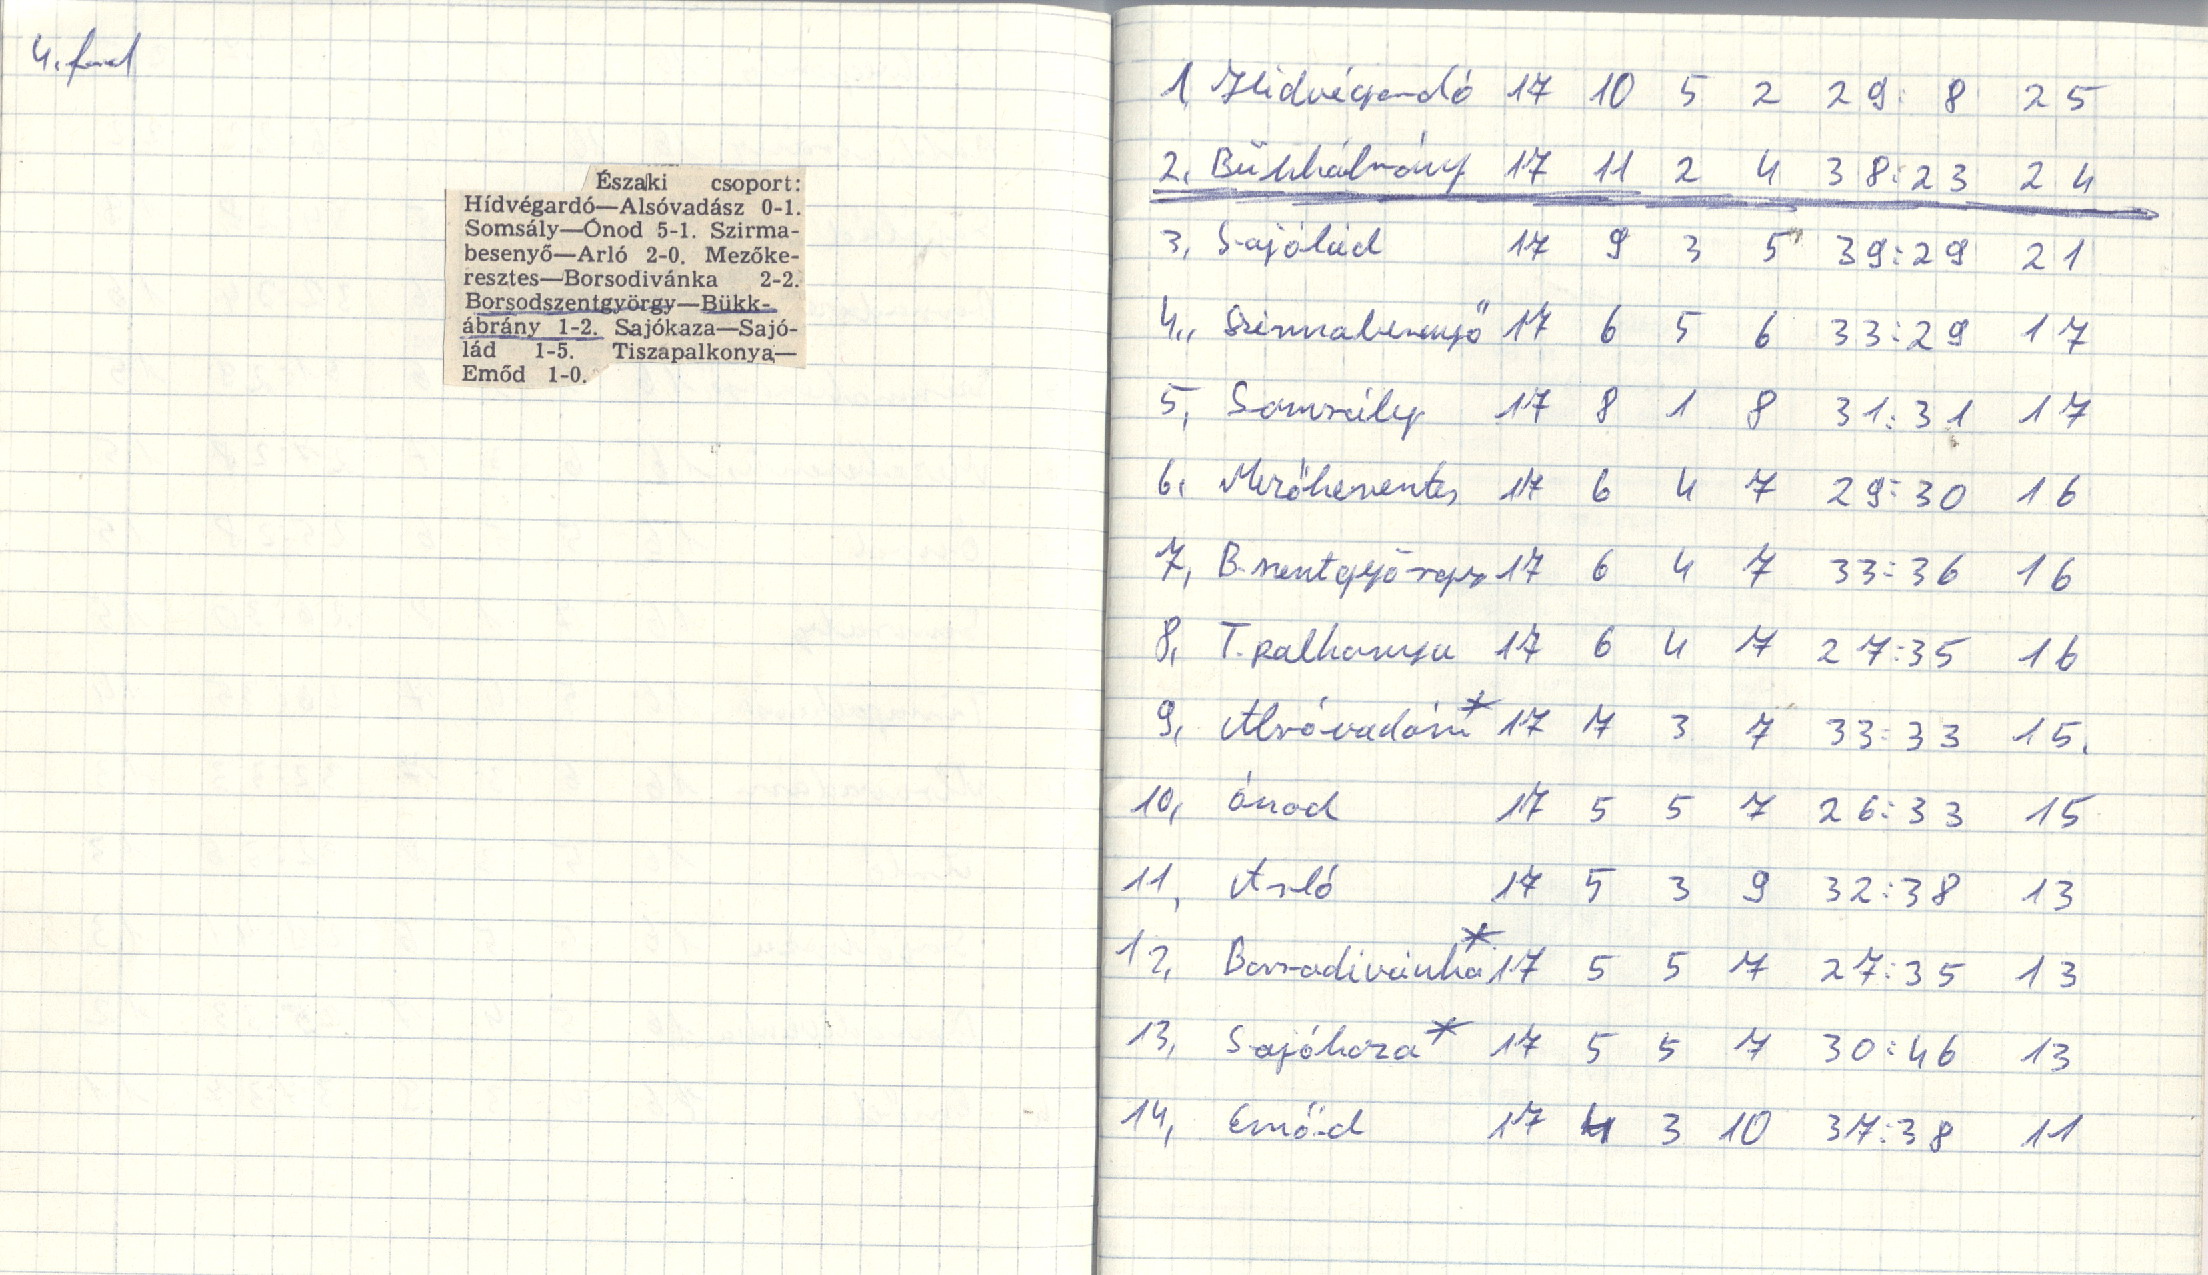 4. ford
Északi csoport:
Hídvégardó—Alsóvadász 0-1.
Somsály—Ónod 5-1. Szirma-
besenyő—Arló 2-0. Mezőke-
resztes—Borsodivánka 2-2.
Borsodszentgyörgy—Bükk-
ábrány 1-2. Sajókaza—Sajó-
lád 1-5. Tiszapalkonya—
Emőd 1-0.
1, Hidvégardó 17 10 5 2 29:8 25
2, Bükkábrány 17 11 2 4 38:23 24
3, Sajólád 17 9 3 5 39:29 21
4., Szirmabesenyő 17 6 5 6 33:29 17
5, Somsály 17 8 1 8 31:31 17
6, Mezőkeresztes 17 6 4 7 29:30 16
7, B.szentgyörgy 17 6 4 7 33:36 16
8, T.palkonya 17 6 4 7 27:35 16
9, Alsóvadász* 17 7 3 7 33:33 15.
10, Ónod 17 5 5 7 26:33 15
11, Arló 17 5 3 9 32:38 13
12, Borsodivánka* 17 5 5 7 27:35 13
13, Sajókaza* 17 5 5 7 30:46 13
14, Emőd 17 4 3 10 37:38 11